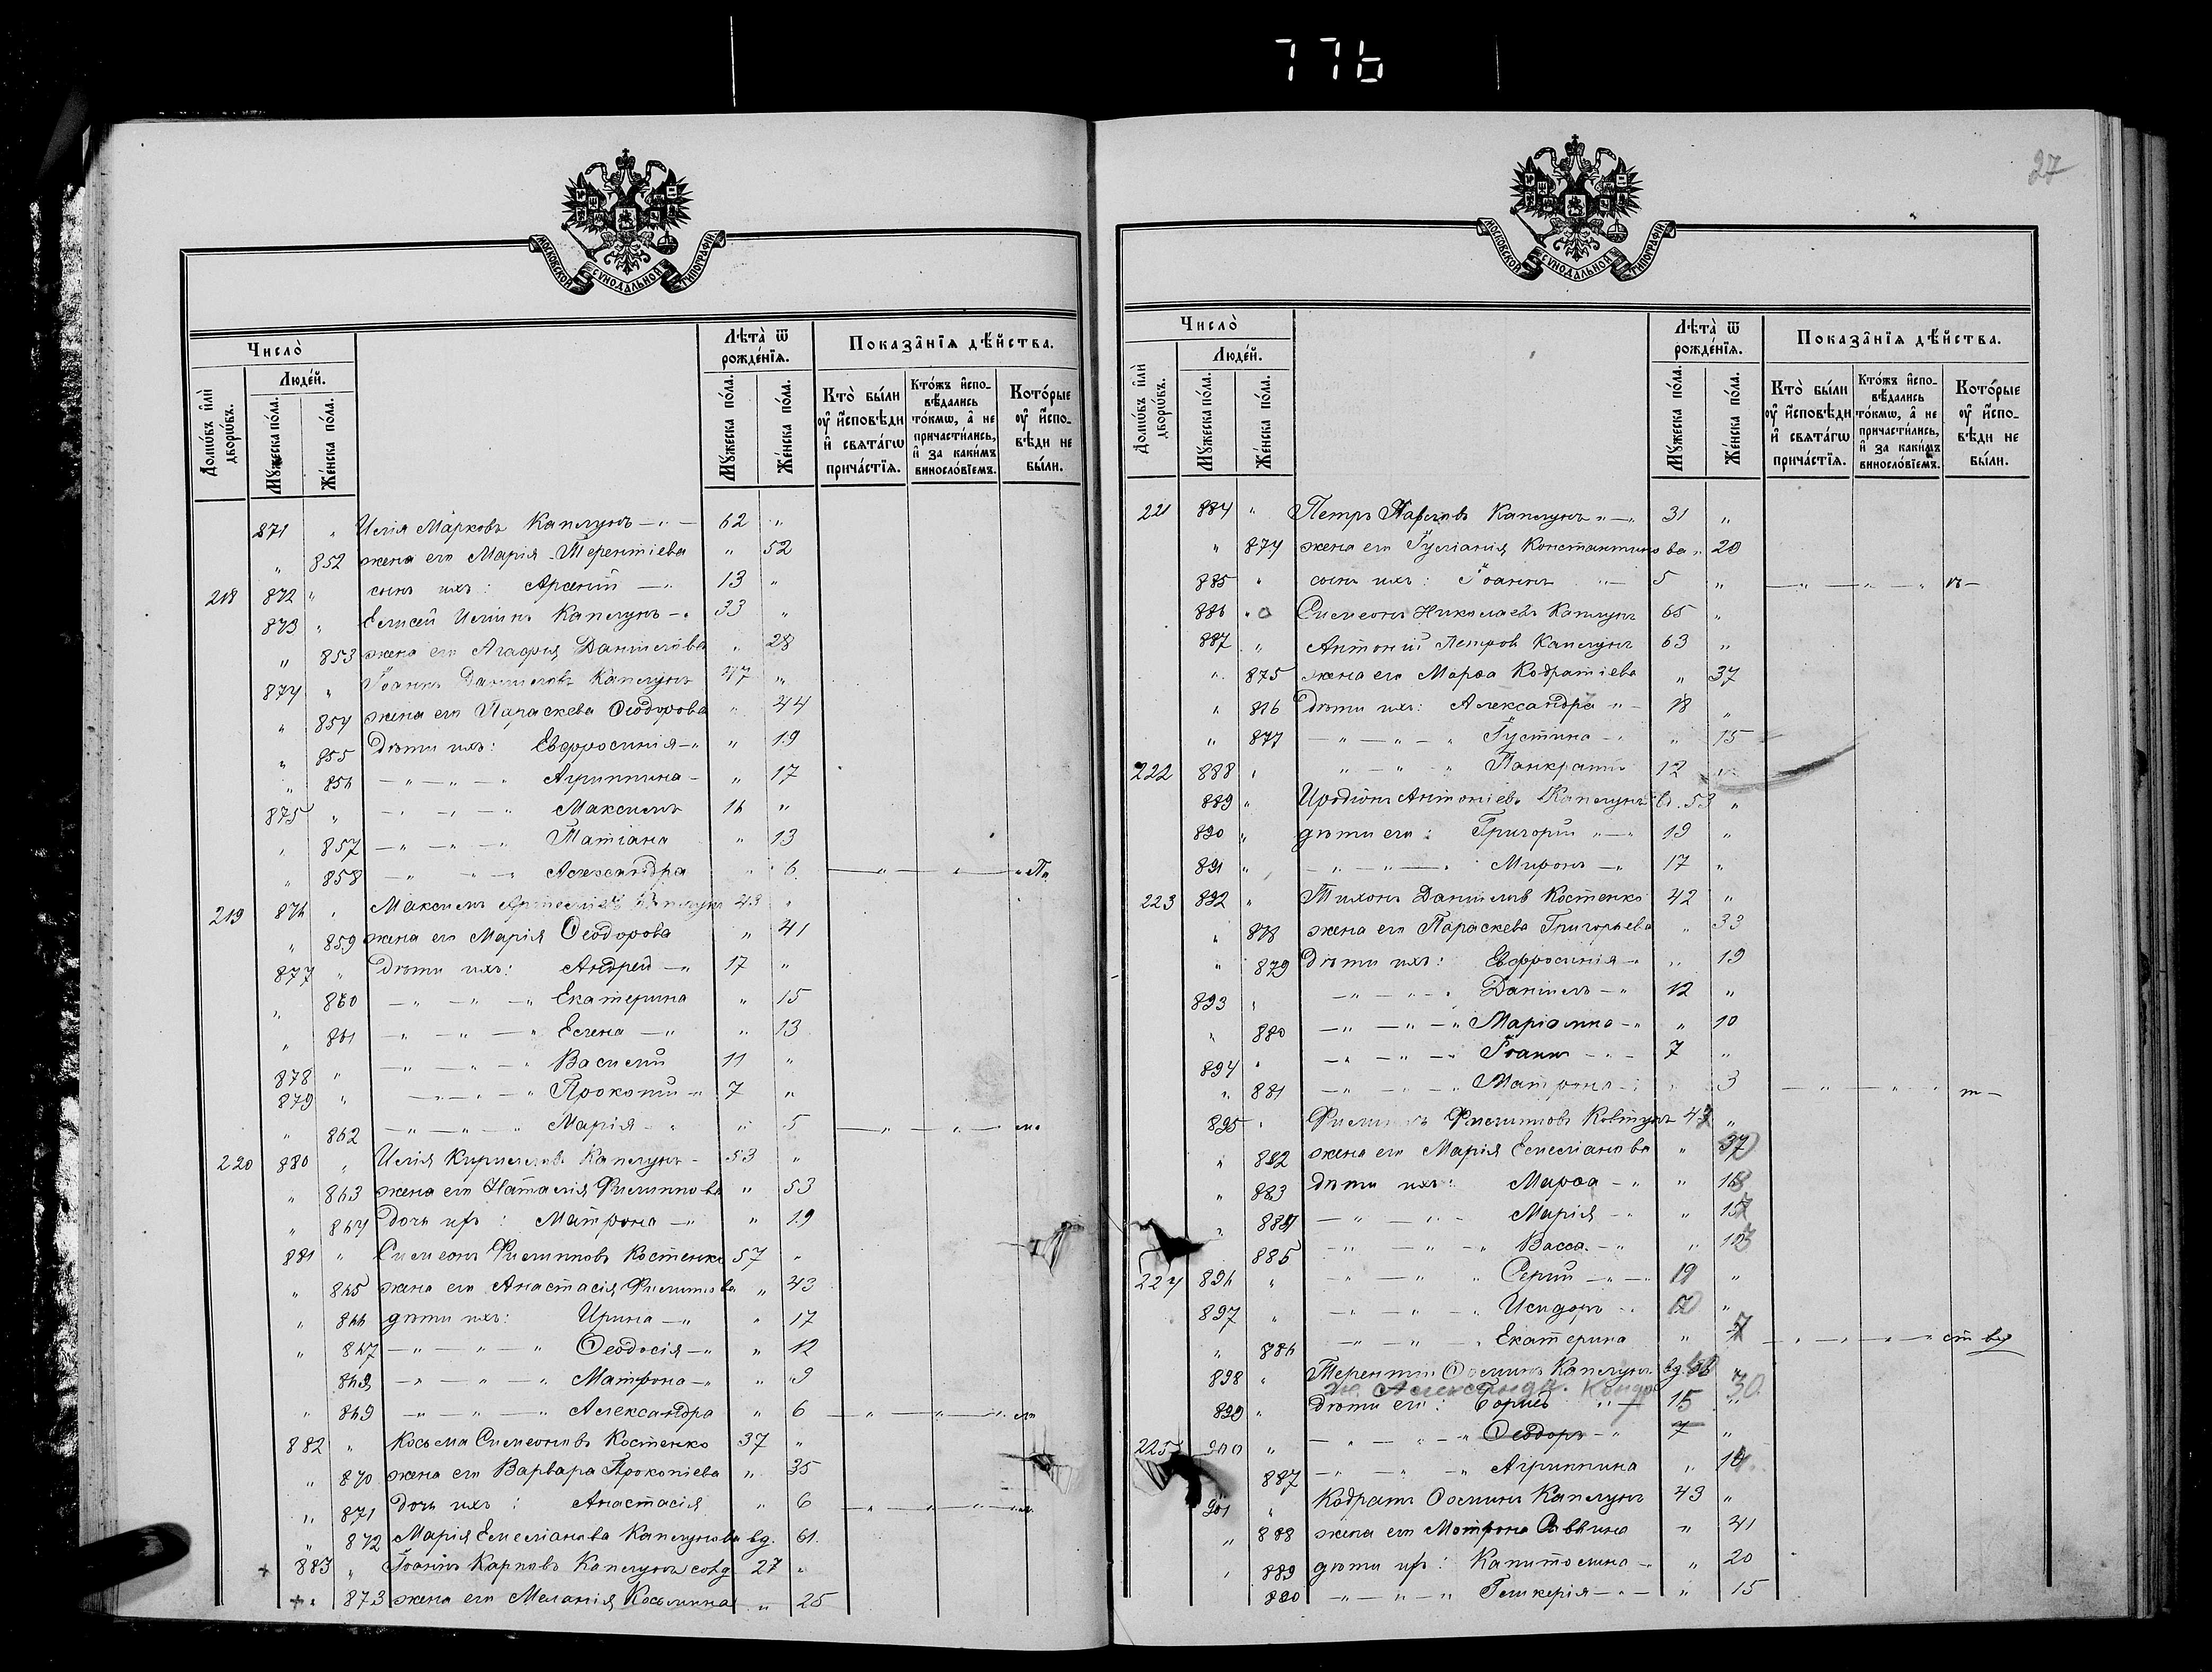 776
МОСКОВСКОЙ СѴНОДАЛЬНОЙ ТИПОГРАФІИ
Число̀
Лѣта̀ ѿ рожде́нїѧ.
Показа̂нїѧ дѣ́йства.
Домѡ́въ и҆лѝ дворѡ́въ.
Люде́й.
Мꙋ́жеска по́ла.
Же́нска по́ла.
Мꙋ́жеска по́ла.
Же́нска по́ла.
Кто̀ бы́ли ᲂу҆ и҆́сповѣди и҆ свѧта́гѡ прича́стїѧ.
Кто́жъ и҆сповѣ́дались то́кмѡ, а҆ не причасти́лись, и҆ за каки́мъ виносло́вїемъ.
Кото́рые ᲂу҆ и҆́сповѣди не бы́ли.
871 " Илія Марковъ Каплунъ 62 "
" 852 жена его Марія Терентіева " 52
218 872 " сынъ ихъ: Арсеній 13 "
873 " Елисей Иліинъ Каплунъ 33 "
" 853 жена его Агафія Даниілова " 28
874 " Іоаннъ Данииловъ Каплунъ 47 "
" 854 жена его Параскева Ѳеодорова " 44
" 855 Дѣти ихъ: Евфросинія " 19
" 856 Агриппина " 17
875 " Максимъ 16 "
" 857 Татіана " 13
" 858 Александра " 6
219 876 " Максимъ Каплунъ 43 "
" 859 жена его Марія Ѳеодорова " 41
877 " Дѣти ихъ: Андрей 17 "
" 860 Екатерина " 15
" 861 Елена " 13
878 " Василій 11 "
879 " Прокопій 7 "
" 862 Марія " 5
220 880 " Илія Кирилловъ Каплунъ 53 "
" 863 жена его Наталія Филиппова " 53
" 864 дочь ихъ: Матрона " 19
881 " Симеонъ Филипповъ Костенко 57 "
" 865 жена его Анастасія Филиппова " 43
" 866 дѣти ихъ: Ирина " 17
" 867 Ѳеодосія " 12
868 Матрона " 9
" 869 Александра " 6
882 " Косьма Симеоновъ Костенко 37 "
" 870 жена его Варвара Прокопіева " 35
" 871 дочь ихъ: Анастасія " 6
" 872 Марія Емеліанова Каплунова вд. 61.
+ 883 " Іоаннъ Карповъ Каплунъ 27 "
+ " 873 жена его Меланія Косьмина " 25
27
МОСКОВСКОЙ СѴНОДАЛЬНОЙ ТИПОГРАФІИ
Число̀
Лѣта̀ ѿ рожде́нїѧ.
Показа̂нїѧ дѣ́йства.
Домѡ́въ и҆лѝ дворѡ́въ.
Люде́й.
Мꙋ́жеска по́ла.
Же́нска по́ла.
Мꙋ́жеска по́ла.
Же́нска по́ла.
Кто̀ бы́ли ᲂу҆ и҆́сповѣди и҆ свѧта́гѡ прича́стїѧ.
Кто́жъ и҆сповѣ́дались то́кмѡ, а҆ не причасти́лись, и҆ за каки́мъ виносло́вїемъ.
Кото́рые ᲂу҆ и҆́сповѣди не бы́ли.
221 884 " Петръ Павловъ Каплунъ 31 "
" 874 жена его Іуліанія Константинова " 20
885 " сынъ ихъ: Іоаннъ 5 "
886 " Симеонъ Николаевъ Каплунъ 65 "
887 " Антоній Петровъ Каплунъ 63 "
" 875 жена его Марѳа Кодратіева " 37
" 876 Дѣти ихъ: Александра 18 "
" 877 Іустина " 15
222 888 " Панкратій 12 "
889 " Иродіонъ Антоніевъ Каплунъ вд. 53 "
890 " дѣти его: Григорій 19 "
891 " Миронъ 17 "
223 892 " Тихонъ Даніиловъ Костенко 42 "
" 878 жена его Параскева Григорьева " 33
" 879 Дѣти ихъ: Евфросинія " 19
893 " Даніилъ 12 "
" 880 Маріанна " 10
894 " Іоаннъ 7 "
" 881 Матрона " 3
895 " Филипповъ Ковтунъ "
" 882 жена его Марія Емеліанова "
" 883 дѣти ихъ: Марѳа "
" 884 Марія "
" 885 Васса "
224 896 " Сергій 19 "
897 " Исидоръ "
" 886 Екатерина "
898 " Терентій Ѳоминъ Каплунъ вд. "
30
899 " Дѣти его: Борисъ 15 "
225 900 " Ѳеодоръ 7 "
887 Агриппина "
901 " Кодратъ Ѳоминъ Каплунъ 43 "
" 888 жена его Матрона Саввина " 41
" 889 дѣти ихъ: Капитолина " 20
890 Гликерія " 15